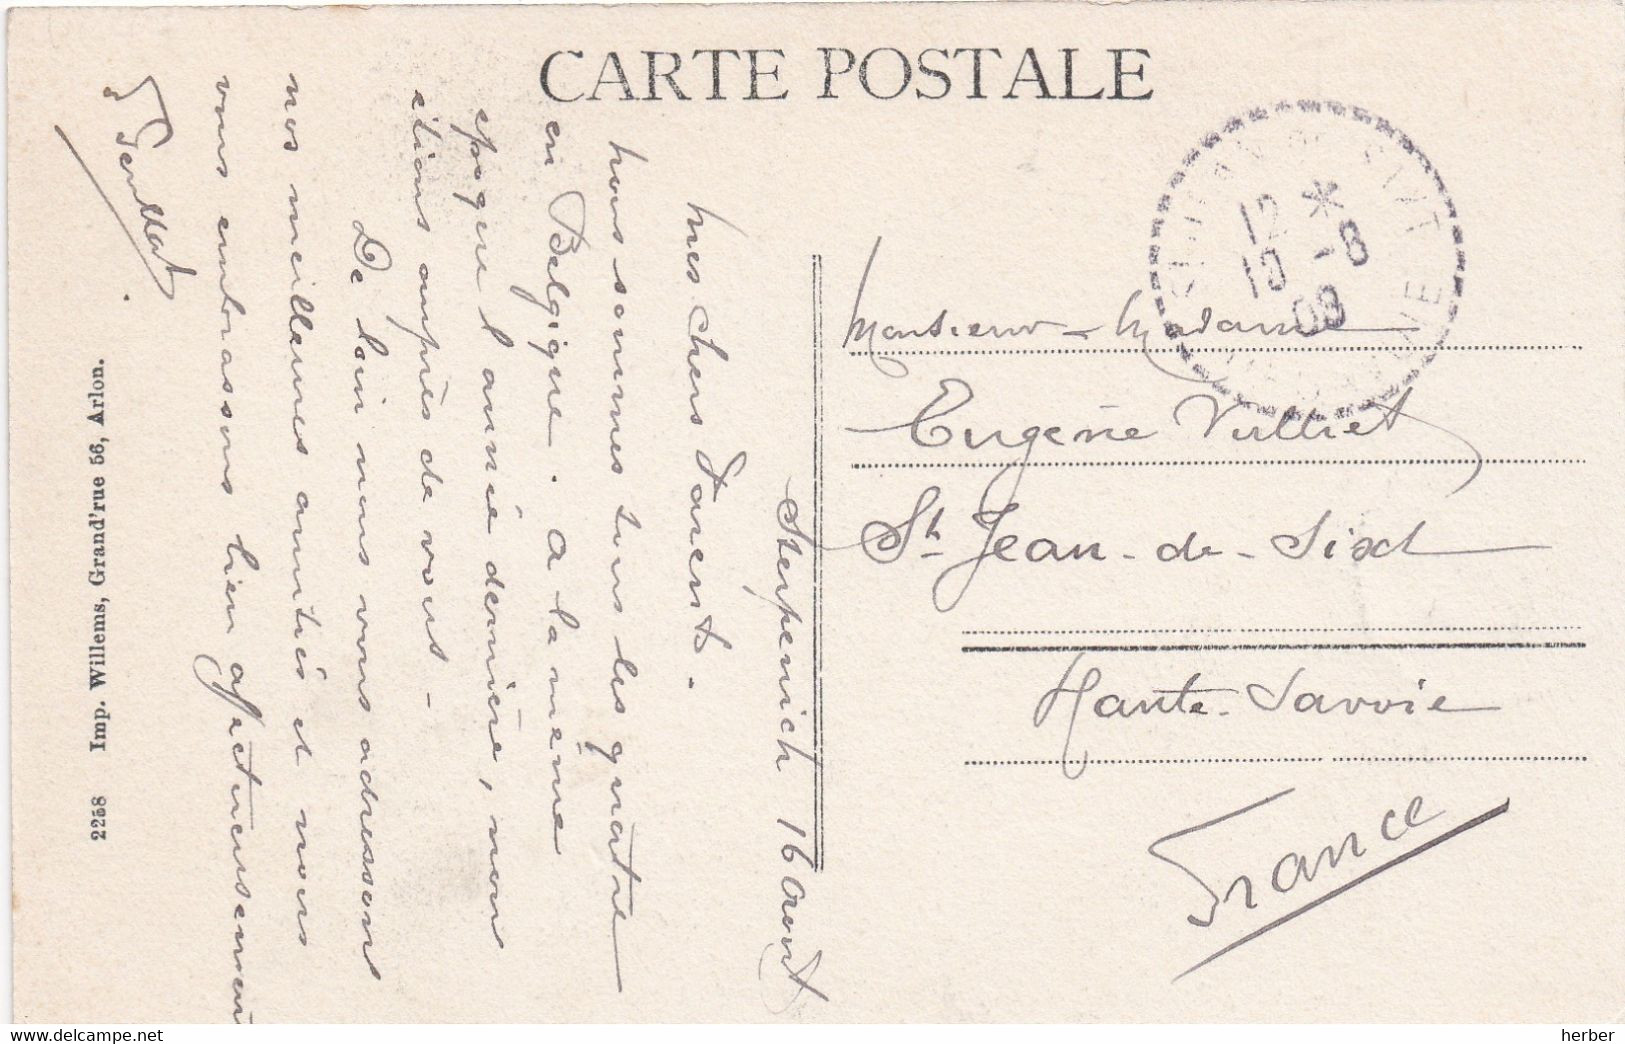 CARTE POSTALE
Sterpenich 16 Aout
Mes Chers Parents.
Nous sommes tous les quatre
en Belgique. A la même
époque l'année dernière, nous
étions auprès de vous -
De loin nous vous adressons
nos meilleures amitiés et nous
vous embrassons bien affectueusement
2258 Imp. Willems, Grand'rue 56, Arlon.
12 *
19 -8
09
Monsieur - Madame
Eugène Vulliet
St Jean - de - Sixt
Haute - Savoie
France
www.delcampe.net
herber